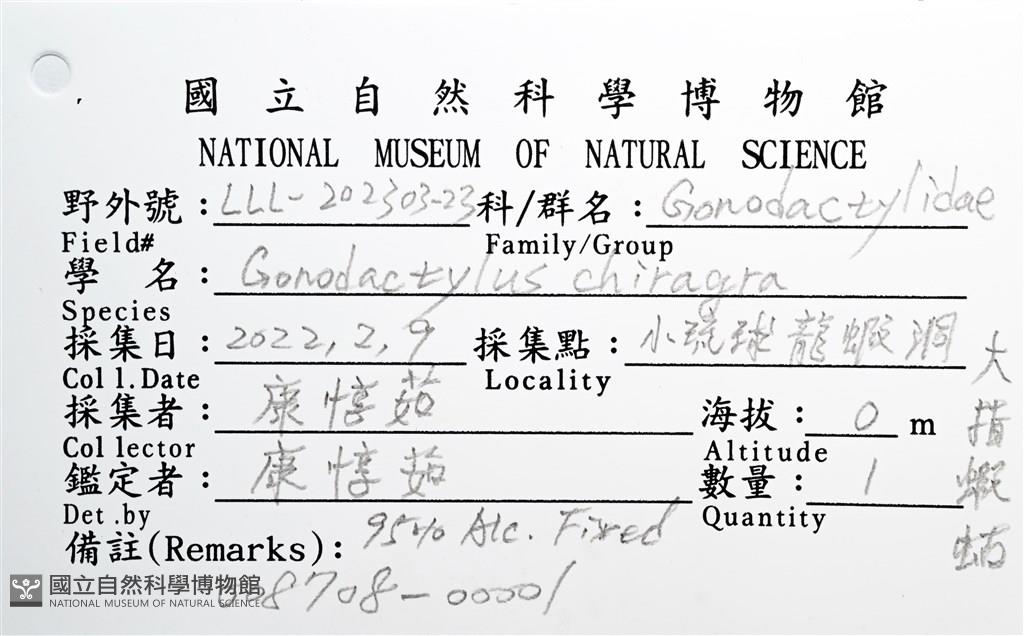 國立自然科學博物館
NATIONAL MUSEUM OF NATURAL SCIENCE
野外號：LLL-202303-23 科/群名：Gonodactylidae
Field# Family/Group
學 名：Gonodactylus chiragra
Species
採集日：2022,2,9 採集點：小琉球龍蝦洞
Coll.Date Locality
採集者：康惇茹 海拔：0 m
Collector Altitude
鑑定者：康惇茹 數量：1
Det.by Quantity
大指蝦蛄
備註(Remarks)：95% Alc. Fixed
008708-00001
國立自然科學博物館
NATIONAL MUSEUM OF NATURAL SCIENCE